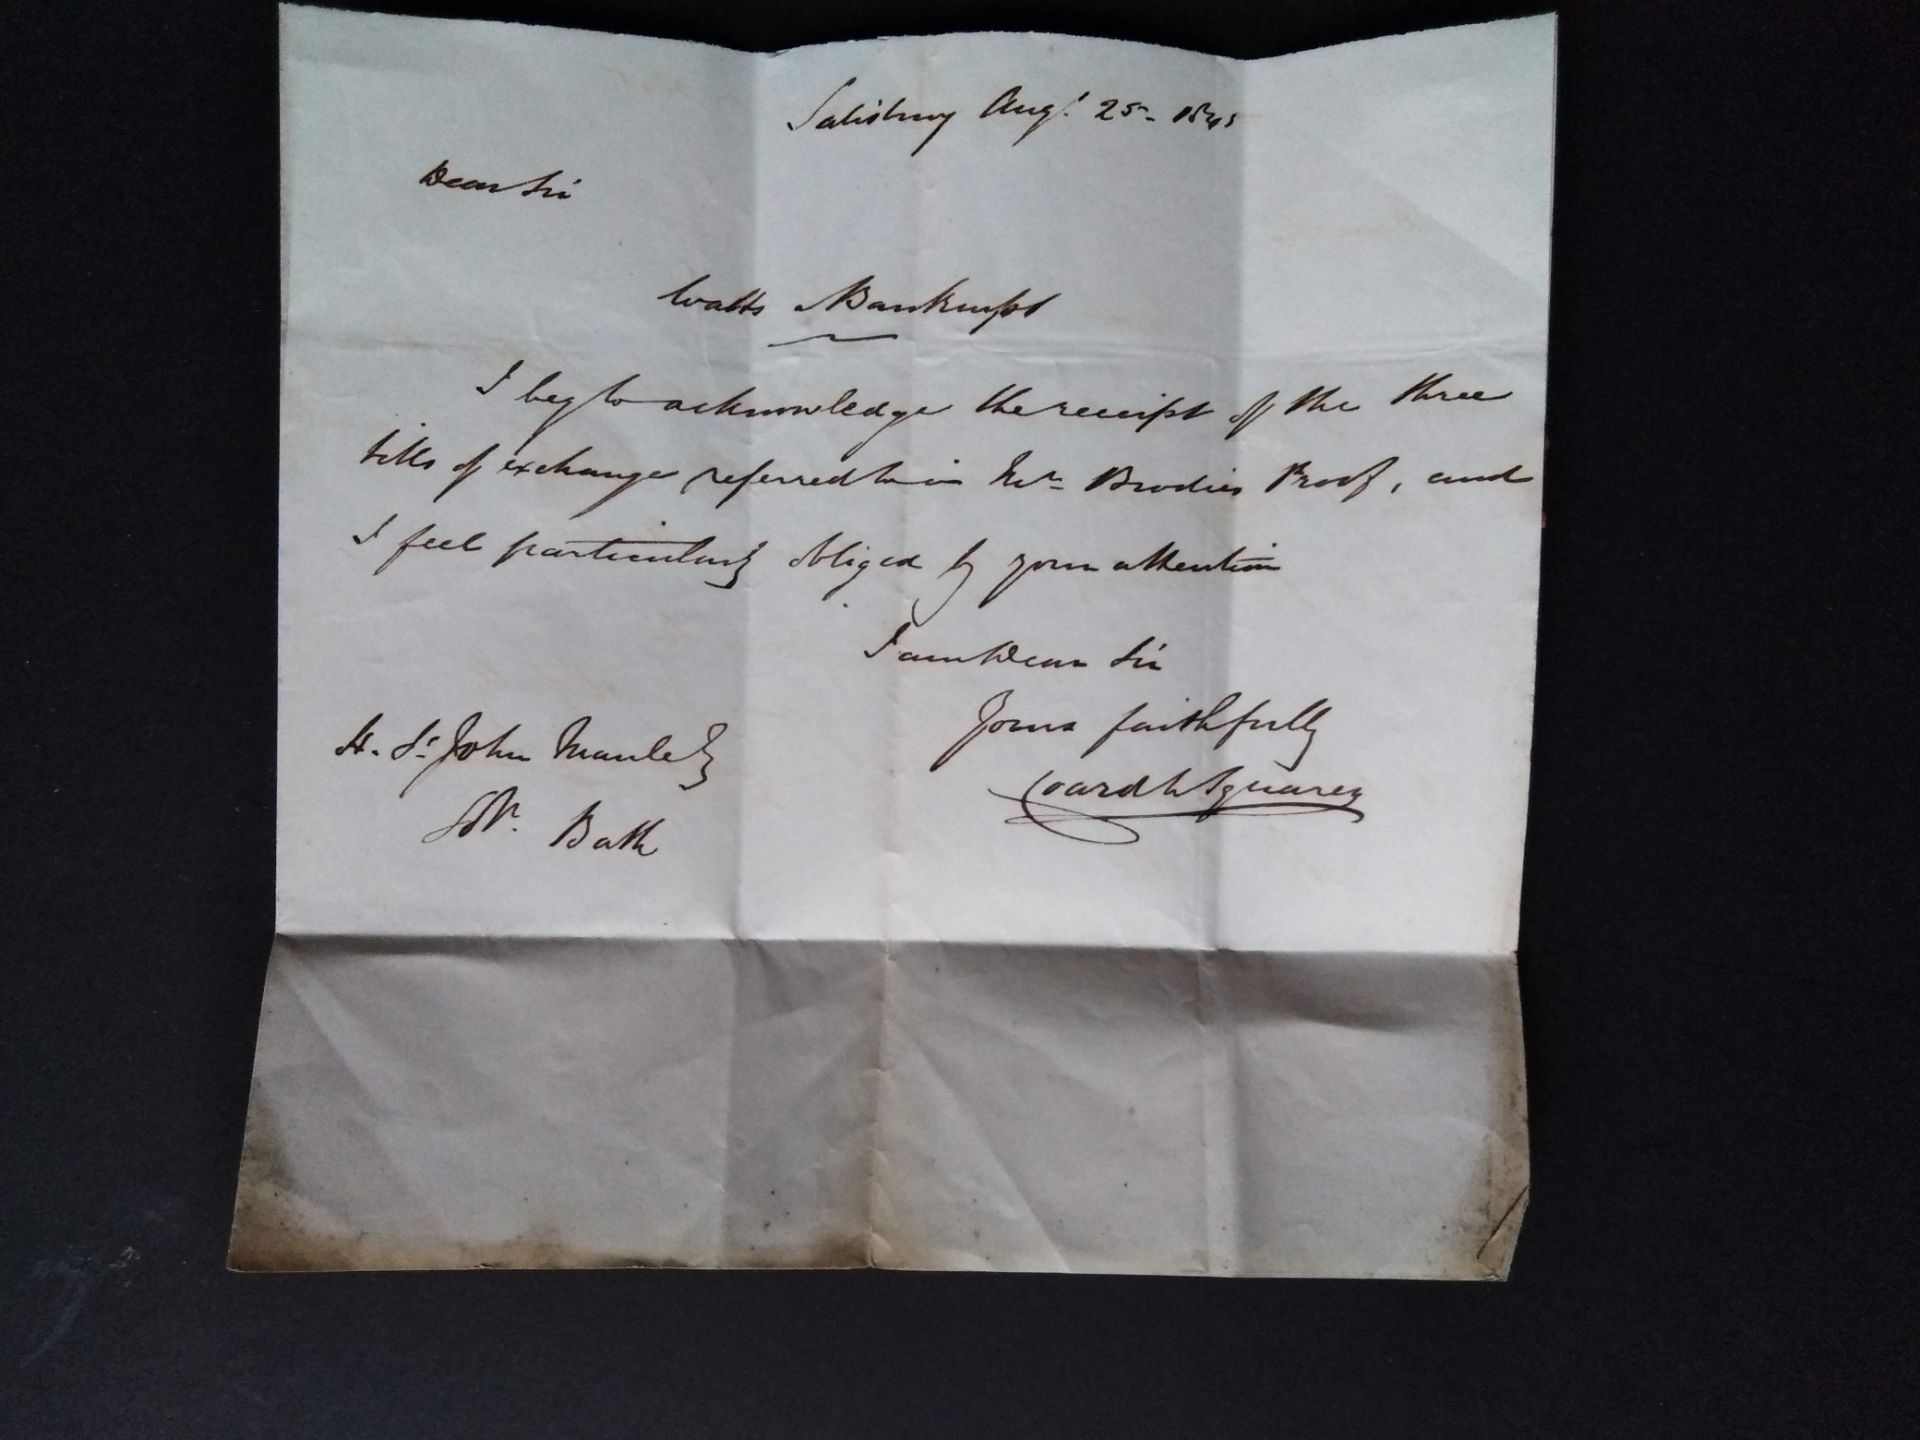 Salisbury Augt. 25- 1845
Dear Sir
Watts Bankrupt
I beg to acknowledge the receipt of the three
bills of exchange referred to in Mr. Brodies Proof, and
I feel particularly obliged by your attention
I am Dear Sir
Yours faithfully
H. St. John Maule
Solr. Bath